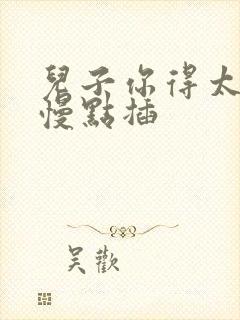 兒子你得太
慢點插
吴歡